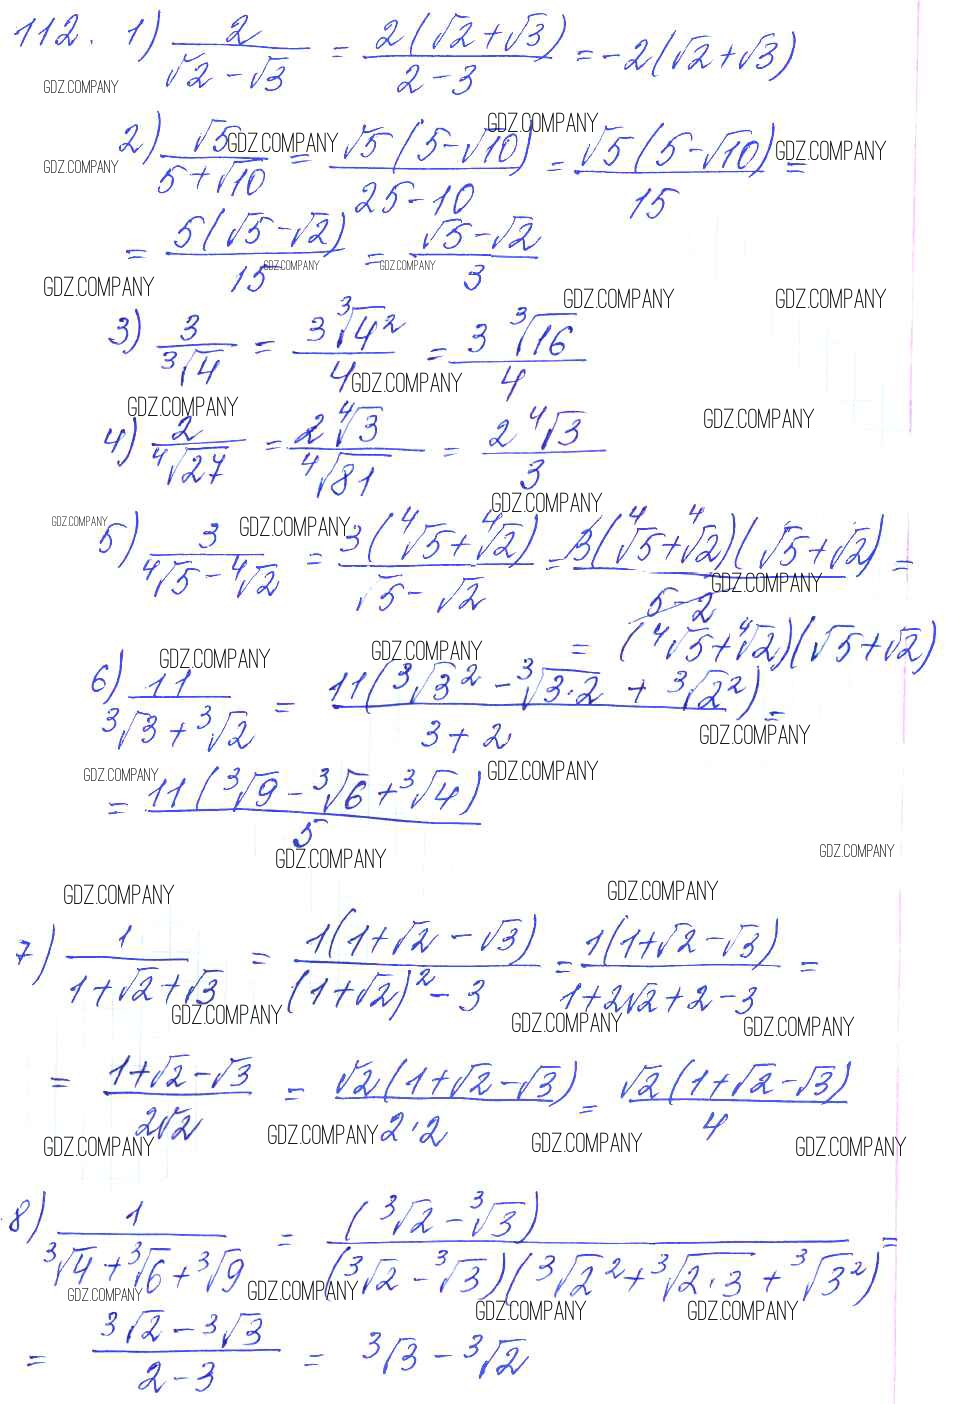 112. 1) 2/(√2 - √3) = 2(√2 + √3)/(2 - 3) = -2(√2 + √3)
GDZ.COMPANY
GDZ.COMPANY
2) √5/(5 + √10) = √5(5 - √10)/(25 - 10) = √5(5 - √10)/15 =
GDZ.COMPANY GDZ.COMPANY GDZ.COMPANY
= 5(√5 - √2)/15 = (√5 - √2)/3
GDZ.COMPANY GDZ.COMPANY
GDZ.COMPANY GDZ.COMPANY GDZ.COMPANY
3) 3/∛4 = 3∛4²/4 = 3∛16/4
GDZ.COMPANY
GDZ.COMPANY GDZ.COMPANY
4) 2/∜27 = 2∜3/∜81 = 2∜3/3
GDZ.COMPANY
GDZ.COMPANY GDZ.COMPANY
5) 3/(∜5 - ∜2) = 3(∜5 + ∜2)/(√5 - √2) = 3(∜5 + ∜2)(√5 + √2)/(5 - 2) =
GDZ.COMPANY
= (∜5 + ∜2)(√5 + √2)
GDZ.COMPANY GDZ.COMPANY
6) 11/(∛3 + ∛2) = 11(∛3² - ∛(3·2) + ∛2²)/(3 + 2) =
GDZ.COMPANY
GDZ.COMPANY GDZ.COMPANY
= 11(∛9 - ∛6 + ∛4)/5
GDZ.COMPANY GDZ.COMPANY
GDZ.COMPANY GDZ.COMPANY
7) 1/(1 + √2 + √3) = 1(1 + √2 - √3)/((1 + √2)² - 3) = 1(1 + √2 - √3)/(1 + 2√2 + 2 - 3) =
GDZ.COMPANY GDZ.COMPANY GDZ.COMPANY
= (1 + √2 - √3)/(2√2) = √2(1 + √2 - √3)/(2·2) = √2(1 + √2 - √3)/4
GDZ.COMPANY GDZ.COMPANY GDZ.COMPANY GDZ.COMPANY
8) 1/(∛4 + ∛6 + ∛9) = (∛2 - ∛3)/((∛2 - ∛3)(∛2² + ∛(2·3) + ∛3²)) =
GDZ.COMPANY GDZ.COMPANY GDZ.COMPANY GDZ.COMPANY
= (∛2 - ∛3)/(2 - 3) = ∛3 - ∛2